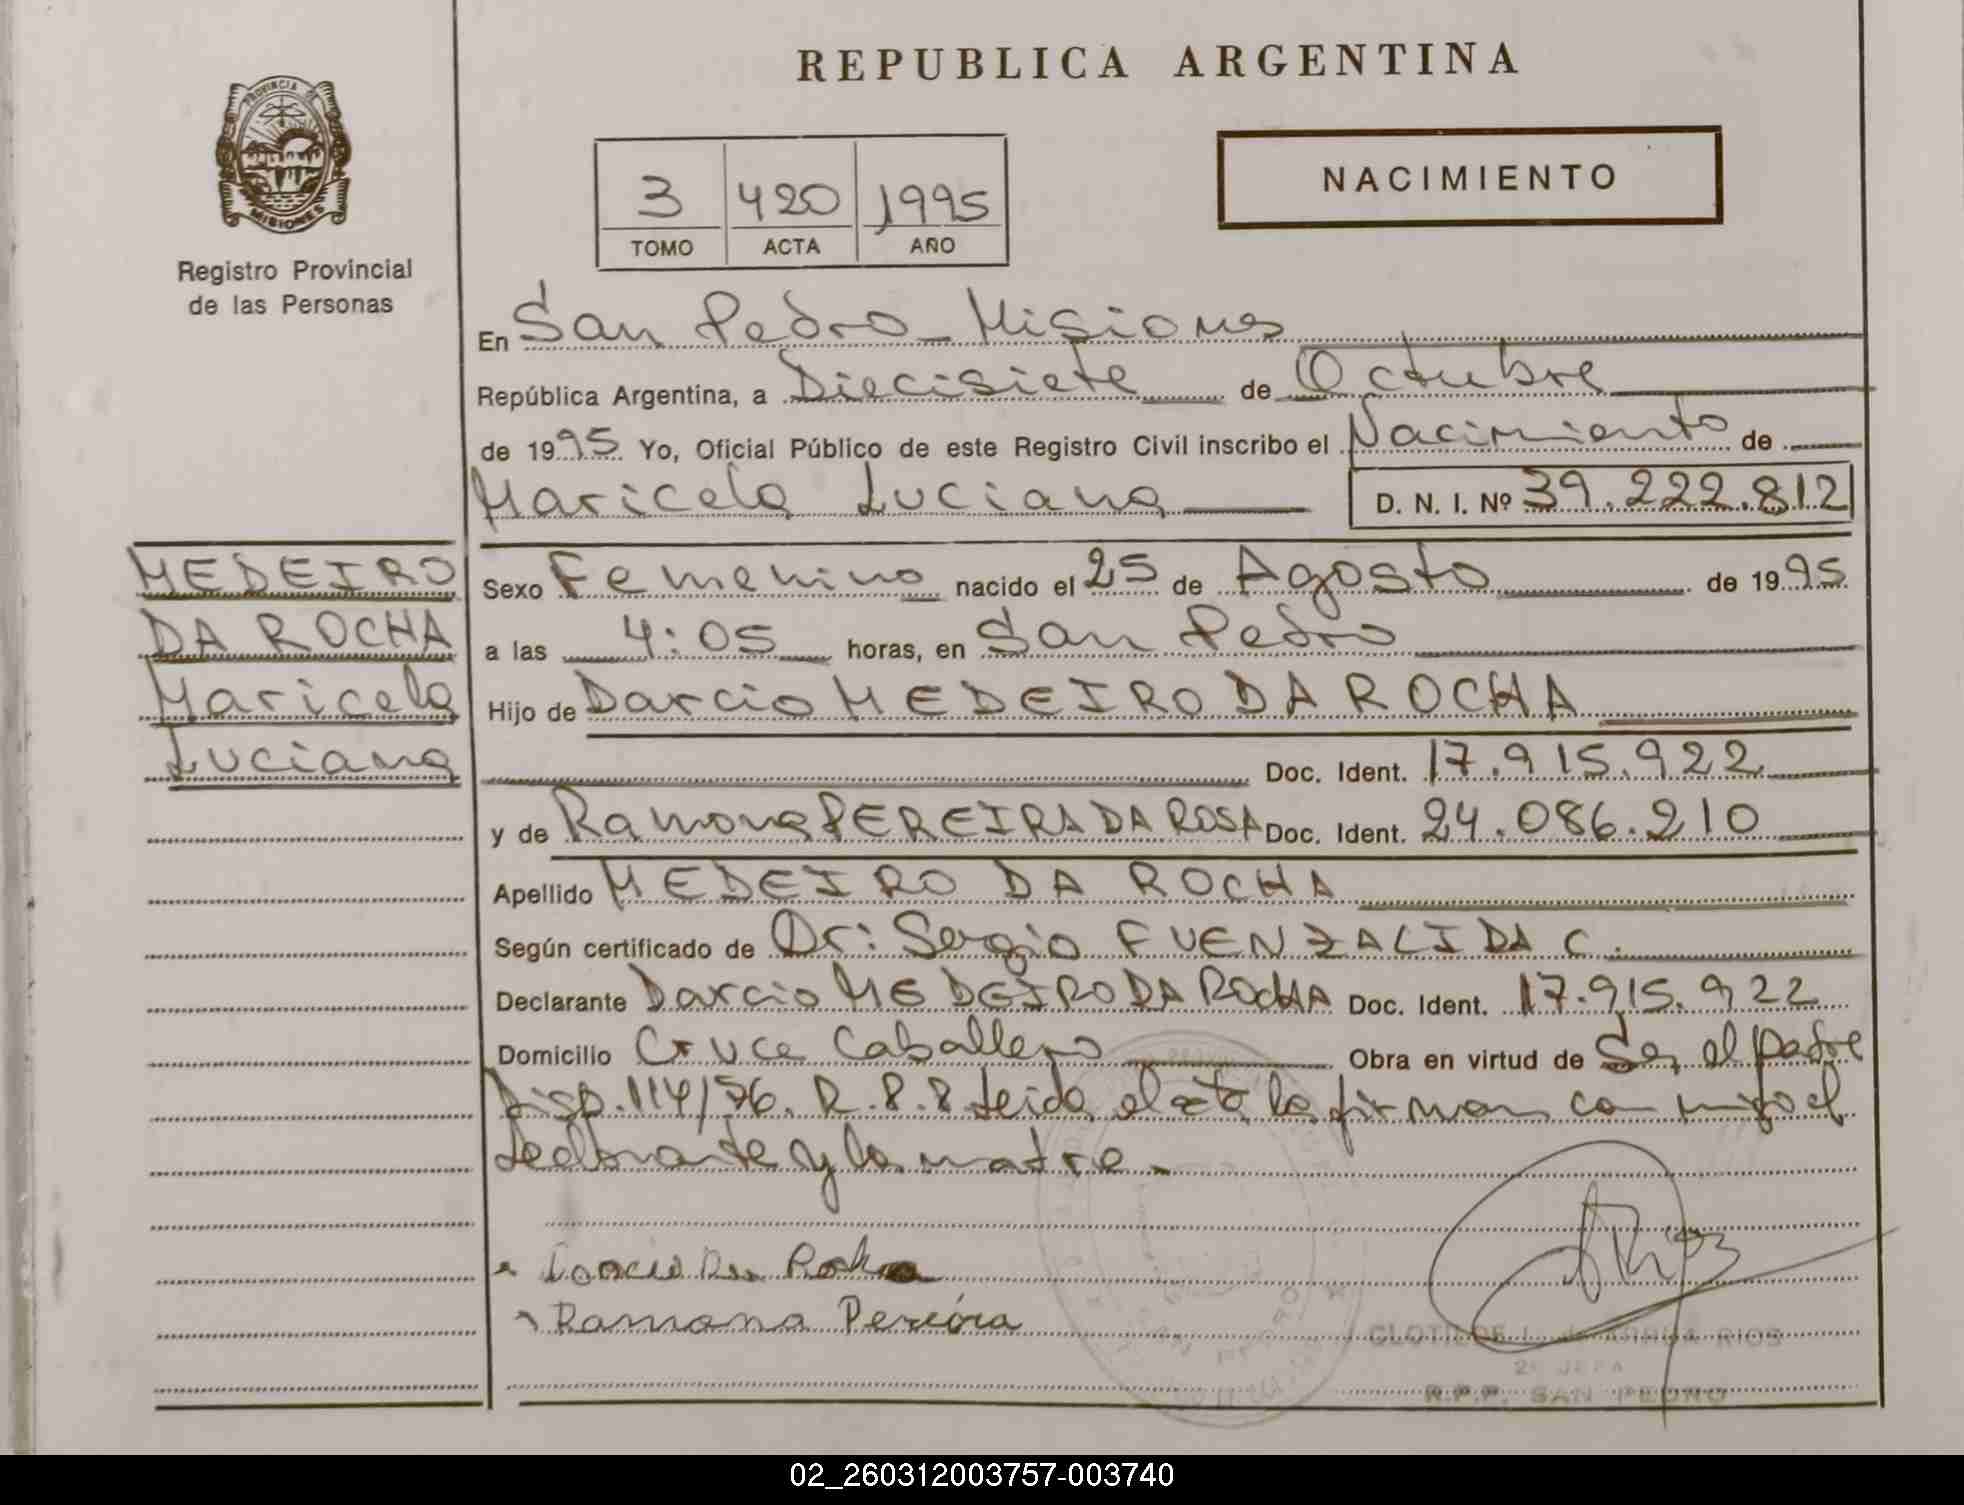 REPUBLICA ARGENTINA
PROVINCIA DE
MISIONES
Registro Provincial
de las Personas
NACIMIENTO
3 420 1995
TOMO ACTA AÑO
En San Pedro - Misiones
República Argentina, a Diecisiete de Octubre
de 1995 Yo, Oficial Público de este Registro Civil inscribo el Nacimiento de
Maricela Luciana D. N. I. Nº 39.222.812
MEDEIRO
DA ROCHA
Maricela
Luciana
Sexo Femenino nacido el 25 de Agosto de 1995
a las 4:05 horas, en San Pedro
Hijo de Darcio MEDEIRO DA ROCHA
Doc. Ident. 17.915.922
y de Ramona PEREIRA DA ROSA Doc. Ident. 24.086.210
Apellido MEDEIRO DA ROCHA
Según certificado de Dr: Sergio FUENZALIDA C.
Declarante Darcio MEDEIRO DA ROCHA Doc. Ident. 17.915.922
Domicilio Cruce Caballero Obra en virtud de Ser el padre
Disp. 114/76. R.8.8 Leida el acta la firman conmigo el
declarante y la madre.-
Ramona Pereira
RIOS
2º JEFA
R.P.P. SAN PEDRO
02_260312003757-003740